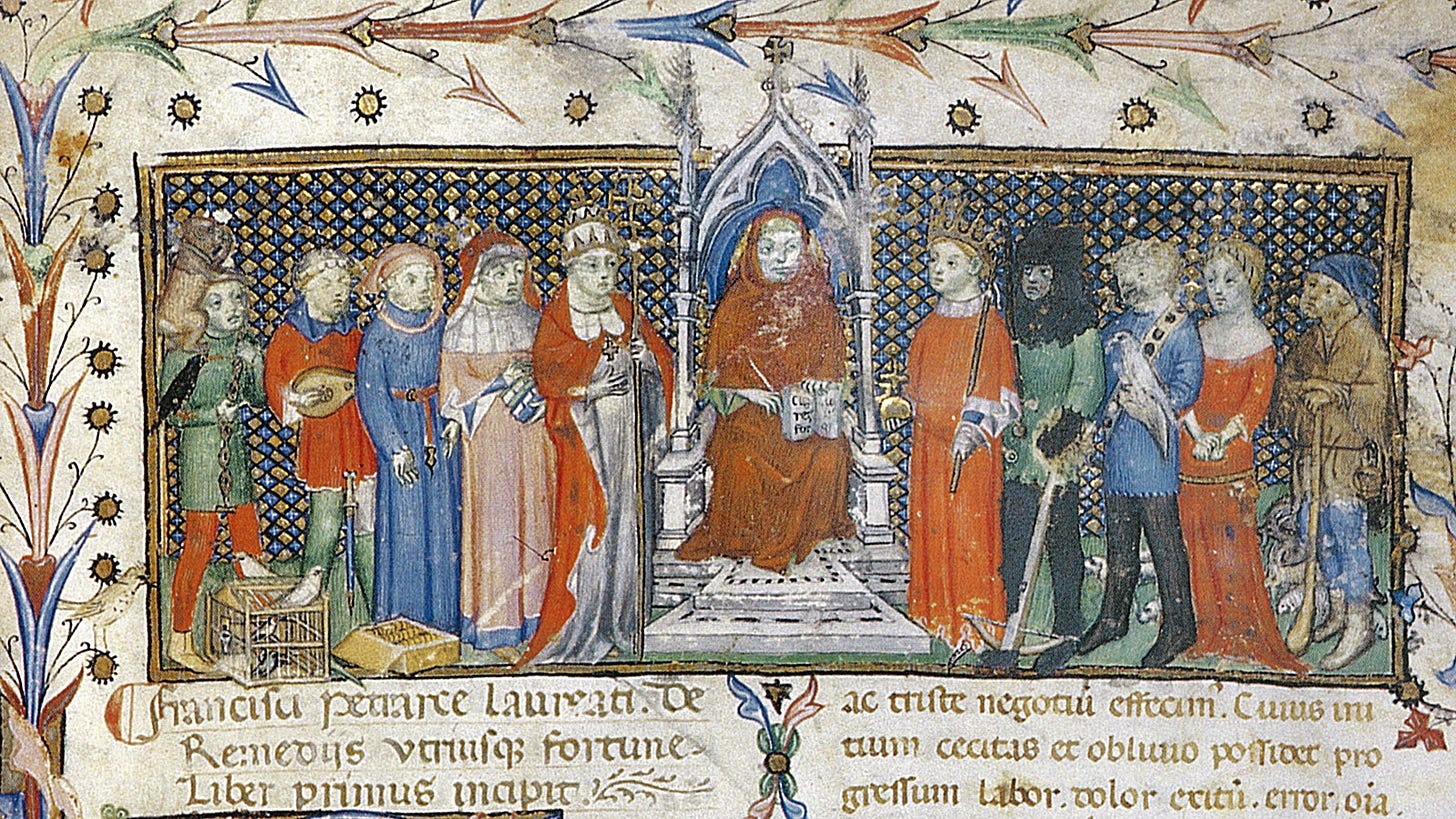 francisci petrarce laureati. De
Remediis utriusq; fortune
Liber primus incipit.
ac triste negotiū effecim̄. Cuius ini
tium cecitas et oblivio possidet pro
gressum labor. dolor exitū. error. oīa.